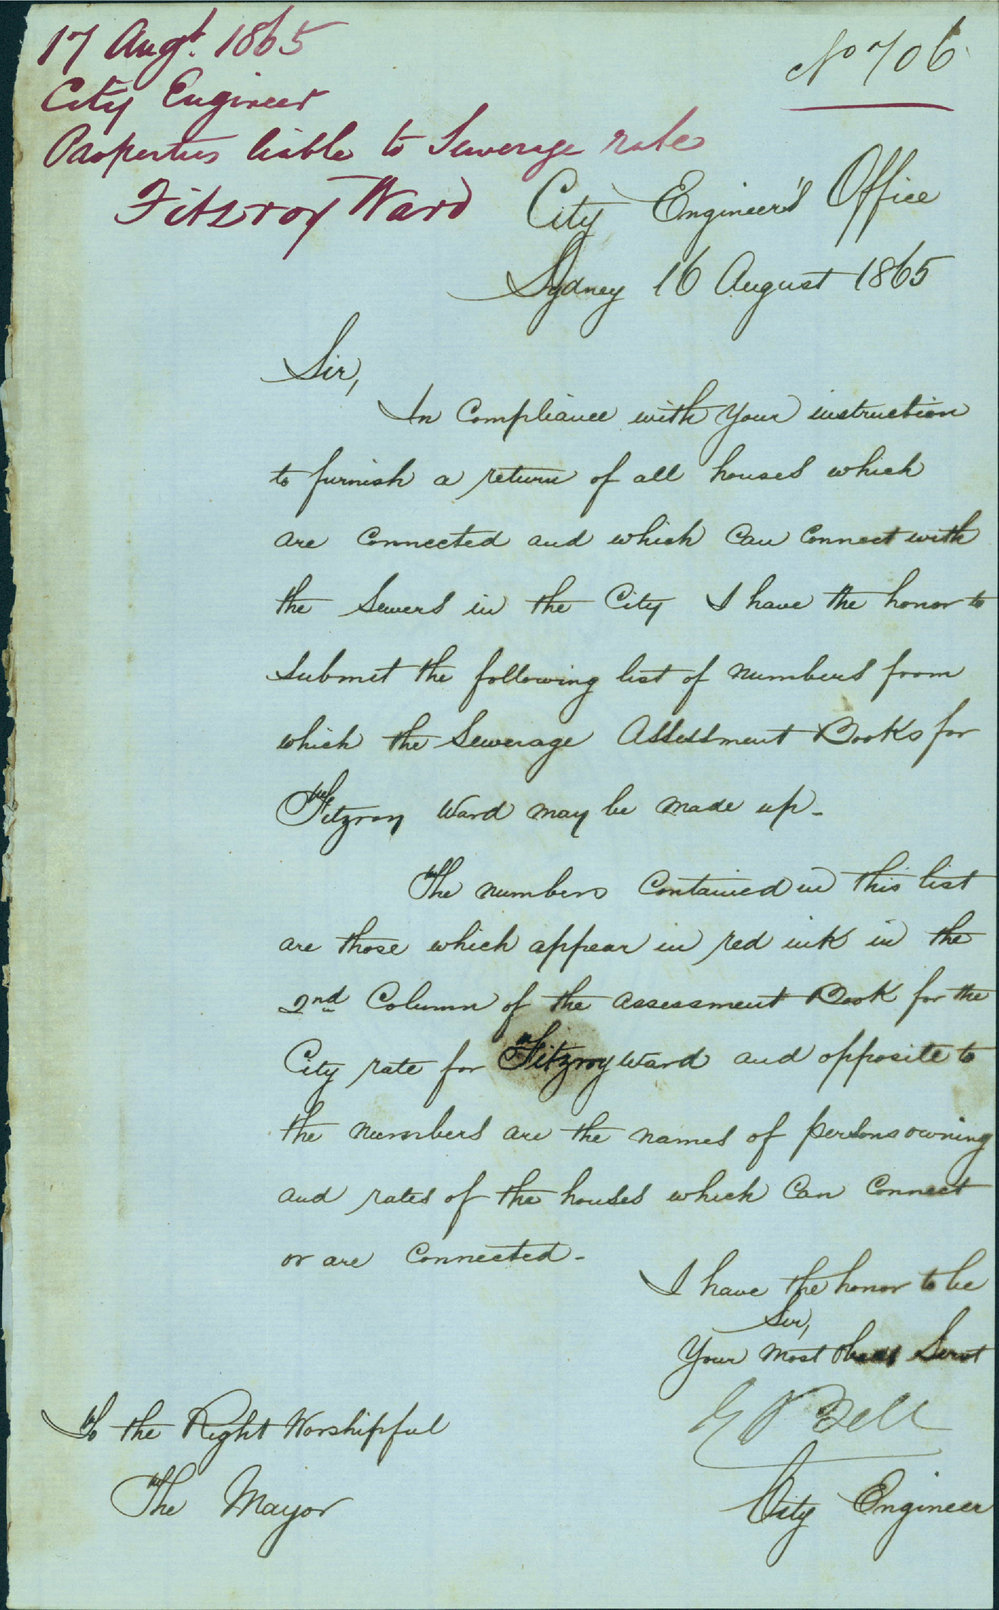 17 Augt. 1865
No 706
City Engineer
Properties liable to Sewerage rate
Fitzroy Ward
City Engineer's Office
Sydney 16 August 1865
Sir,
In Compliance with your instruction
to furnish a return of all houses which
are Connected and which Can Connect with
the Sewers in the City I have the honor to
submit the following list of numbers from
which the Sewerage Assessment Books for
Fitzroy Ward may be made up -
The numbers Contained in this list
are those which appear in red ink in the
2nd Column of the assessment Book for the
City rate for Fitzroy Ward and opposite to
the numbers are the names of persons owning
and rates of the houses which Can Connect
or are Connected -
I have the honor to be
Sir,
Your most Obedt Servt
Bell
City Engineer
To the Right Worshipful
The Mayor